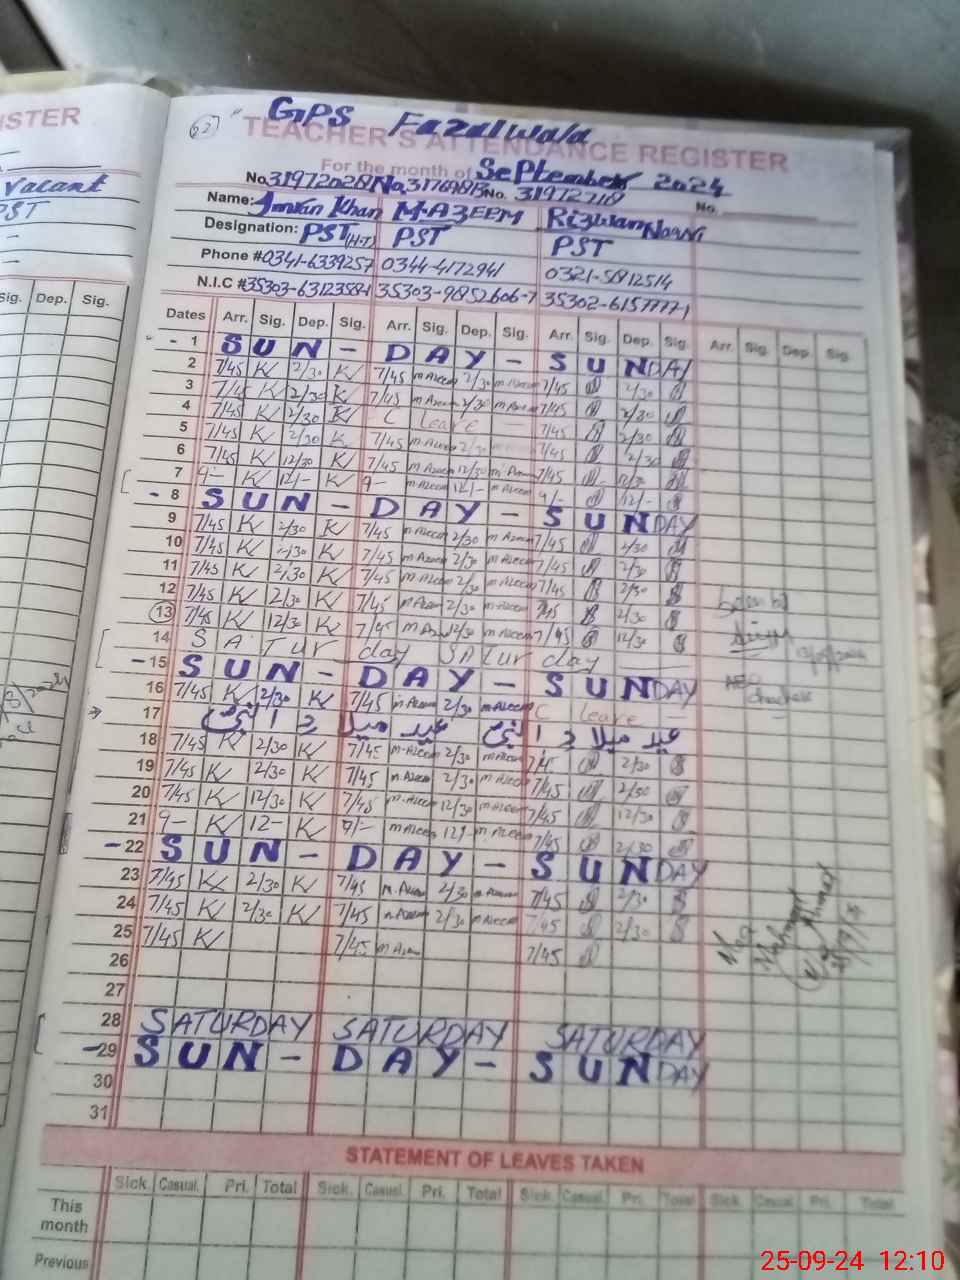 ISTER
Vacant
PST
Sig. Dep. Sig.
62
GPS Fazalwala
TEACHER'S ATTENDANCE REGISTER
For the month of September 2024
No. 31972028 No. No. 31972718 No.
Name: Imran Khan M.AZEEM Rizwan
Designation: PST (H.T) PST PST
Phone # 0341-6339257 0344-4172941 0321-5812514
N.I.C # 35303-9852606-7 35302-6157777-1
Dates Arr. Sig. Dep. Sig. Arr. Sig. Dep. Sig. Arr. Sig. Dep. Sig. Arr. Sig. Dep. Sig.
- 1 SUN - DAY - SUNDAY
2 7/45 K 2/30 K 7/45 m Azeem 2/30 m Azeem 7/45 2/30
3 7/45 K 2/30 K 7/45 m Azeem 2/30 m Azeem 7/45 2/30
4 7/45 K 2/30 K C leave 7/45 2/30
5 7/45 K 2/30 K 7/45 m Azeem 2/30 7/45 2/30
6 7/45 K 12/30 K 7/45 m Azeem 12/30 m Azeem 7/45 12/30
7 9- K 12/- K 9- m Azeem 12/- m Azeem 9/- 12/-
- 8 SUN - DAY - SUNDAY
9 7/45 K 2/30 K 7/45 m Azeem 2/30 m Azeem 7/45 2/30
10 7/45 K 2/30 K 7/45 m Azeem 2/30 m Azeem 7/45 2/30
11 7/45 K 2/30 K 7/45 m Azeem 2/30 m Azeem 7/45 2/30
12 7/45 K 2/30 K 7/45 m Azeem 2/30 m Azeem 7/45 2/30
13 7/45 K 12/30 K 7/45 m Azeem 12/30 m Azeem 7/45 12/30
14 SATUR day SATUR day
- 15 SUN - DAY - SUNDAY
16 7/45 K 2/30 K 7/45 m Azeem 2/30 m Azeem C leave
17 عید میلاد النبی عید میلاد النبی
18 7/45 K 2/30 K 7/45 m Azeem 2/30 m Azeem 7/45 2/30
19 7/45 K 2/30 K 7/45 m Azeem 2/30 m Azeem 7/45 2/30
20 7/45 K 12/30 K 7/45 m Azeem 12/30 m Azeem 7/45 12/30
21 9- K 12- K 9/- m Azeem 12/- m Azeem 7/45 2/30
- 22 SUN - DAY - SUNDAY
23 7/45 K 2/30 K 7/45 m Azeem 2/30 m Azeem 7/45 2/30
24 7/45 K 2/30 K 7/45 m Azeem 2/30 m Azeem 7/45 2/30
25 7/45 K 7/45 m Azeem 7/45
26
27
28 SATURDAY SATURDAY SATURDAY
- 29 SUN - DAY - SUNDAY
30
31
STATEMENT OF LEAVES TAKEN
Sick. Casual. Pri. Total Sick. Casual. Pri. Total Sick. Casual. Pri. Total Sick. Casual. Pri. Total
This month
Previous
25-09-24 12:10